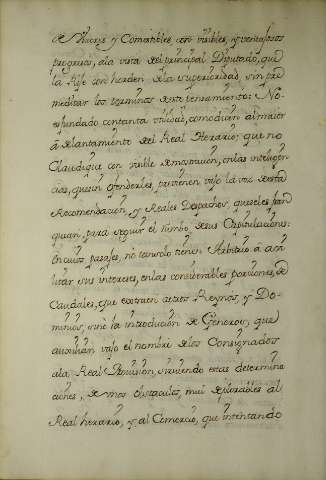 de Viveres y Comestibles, con visibles, y ventajosos
progresos, ala vista del principal Diputado, que
la Rije con horden dela superioridad, sin pre
meditar los terminos de este pensamiento: No
es fundado contanta utilidad, como dicen al maior
adelantamiento del Real Herario; que no
Claudique con visible demostracion, enlas inteligen
cias, que sin ofenderles, previenen vajo la voz de esta
Recomendacion, y Reales Despachos, que seles fran
quean, para seguir el rumbo desus Capitulaciones:
En cuios pasajes, no tansolo tienen Arbitrio a
sus intereses, enlas considerables porciones, de
Caudales, que extraen a estos Reynos, y Do-
minios, sino la introducion de Generos, que
auxilian vajo el nombre delos Consignados
ala Real Provision, sirviendo estas determina
ciones, de unos obstaculos, mui deplorables al
Real herario, y al Comercio, que intentando